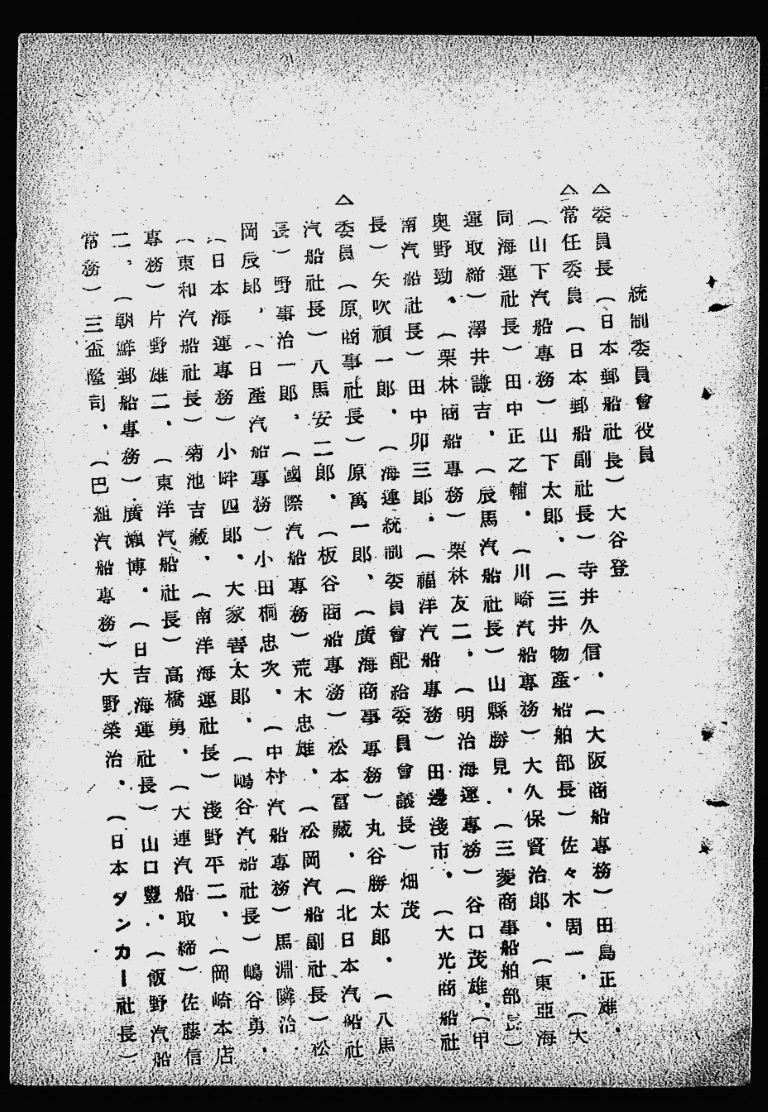 統制委員會役員
△委員長(日本郵船社長)大谷登
△常任委員(日本郵船副社長)寺井久信、(大阪商船專務)田島正雄、
(山下汽船專務)山下太郎、(三井物產船舶部長)佐々木周一、(大
同海運社長)田中正之輔、(川崎汽船專務)大久保賢治郎、(東亞海
運取締)澤井謙吉、(辰馬汽船社長)山縣勝見、(三菱商事船舶部長)
奧野勁、(栗林商船專務)栗林友二、(明治海運專務)谷口茂雄、(甲
南汽船社長)田中卯三郎、(福洋汽船專務)田邊淺市、(大光商船社
長)矢吹禎一郎、(海運統制委員會配給委員會議長)畑茂
△委員(原商事社長)原萬一郎、(廣海商事專務)丸谷勝太郎、(八馬
汽船社長)八馬安二郎、(板谷商船專務)松本冨藏、(北日本汽船社
長)野事治一郎、(國際汽船專務)荒木忠雄、(松岡汽船副社長)松
岡辰郎、(日產汽船專務)小田桐忠次、(中村汽船專務)馬淵隣治、
(日本海運專務)小畔四郎、大家善太郎、(嶋谷汽船社長)嶋谷勇、
(東和汽船社長)菊池吉藏、(南洋海運社長)淺野平二、(岡崎本店
專務)片野雄二、(東洋汽船社長)高橋勇、(大連汽船取締)佐藤信
二、(朝鮮郵船專務)廣瀨博、(日吉海運社長)山口豐、(飯野汽船
常務)三盃隆司、(巴組汽船專務)大野榮治、(日本タンカー社長)